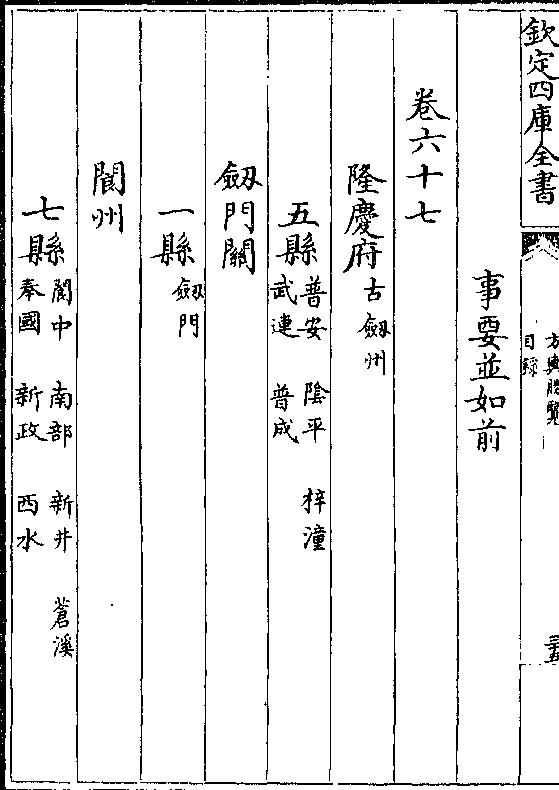 欽定四庫全書
方輿勝覽
目錄
三十五
事要並如前
卷六十七
隆慶府古劔州
五縣普安 隂平 梓潼
武連 普成
劔門關
一縣劔門
閬州
七縣閬中 南部 新井 蒼溪
奉國 新政 西水